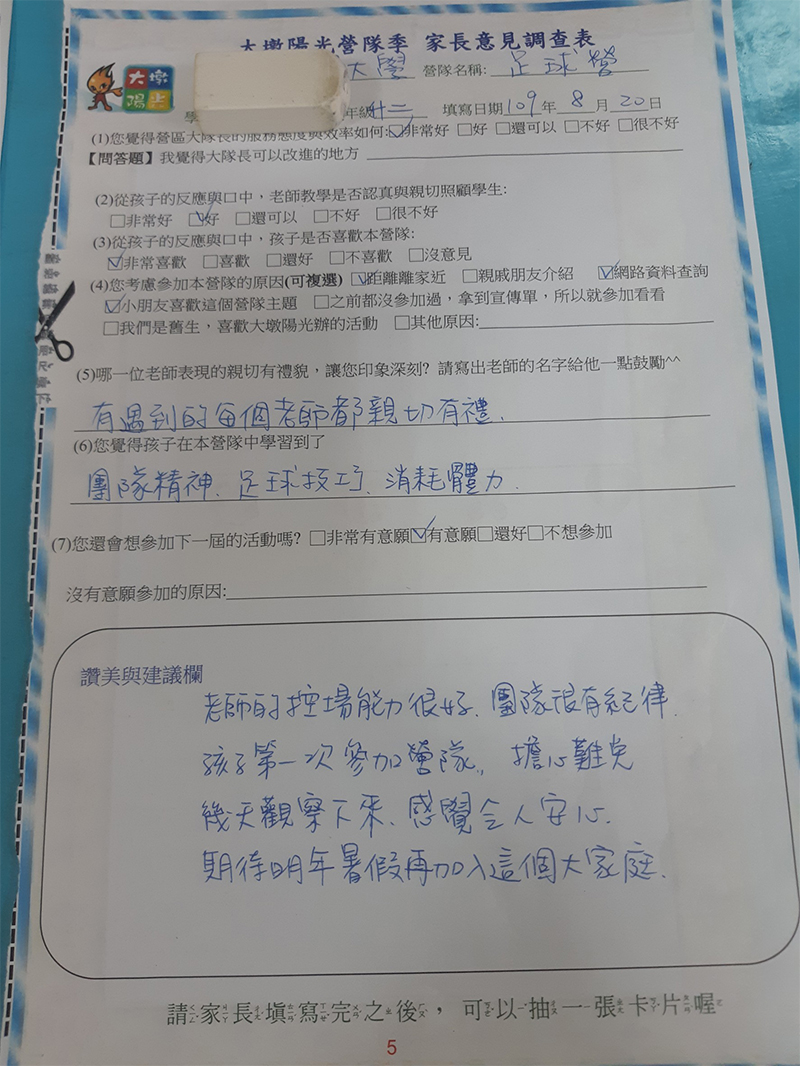 大墩陽光營隊季 家長意見調查表
大墩
陽光
大學 營隊名稱: 足球營
年級 升二 填寫日期109年8月20日
(1)您覺得營區大隊長的服務態度與效率如何:☑非常好 □好 □還可以 □不好 □很不好
【問答題】我覺得大隊長可以改進的地方
(2)從孩子的反應與口中，老師教學是否認真與親切照顧學生:
□非常好 ☑好 □還可以 □不好 □很不好
(3)從孩子的反應與口中，孩子是否喜歡本營隊:
☑非常喜歡 □喜歡 □還好 □不喜歡 □沒意見
(4)您考慮參加本營隊的原因(可複選) ☑距離離家近 □親戚朋友介紹 ☑網路資料查詢
☑小朋友喜歡這個營隊主題 □之前都沒參加過，拿到宣傳單，所以就參加看看
□我們是舊生，喜歡大墩陽光辦的活動 □其他原因:
(5)哪一位老師表現的親切有禮貌，讓您印象深刻? 請寫出老師的名字給他一點鼓勵^^
有遇到的每個老師都親切有禮.
(6)您覺得孩子在本營隊中學習到了
團隊精神、足球技巧、消耗體力.
(7)您還會想參加下一屆的活動嗎? □非常有意願☑有意願□還好□不想參加
沒有意願參加的原因:
讚美與建議欄
老師的控場能力很好、團隊很有紀律.
孩子第一次參加營隊,, 擔心難免
幾天觀察下來、感覺令人安心.
期待明年暑假再加入這個大家庭.
請家長填寫完之後，可以抽一張卡片喔
5